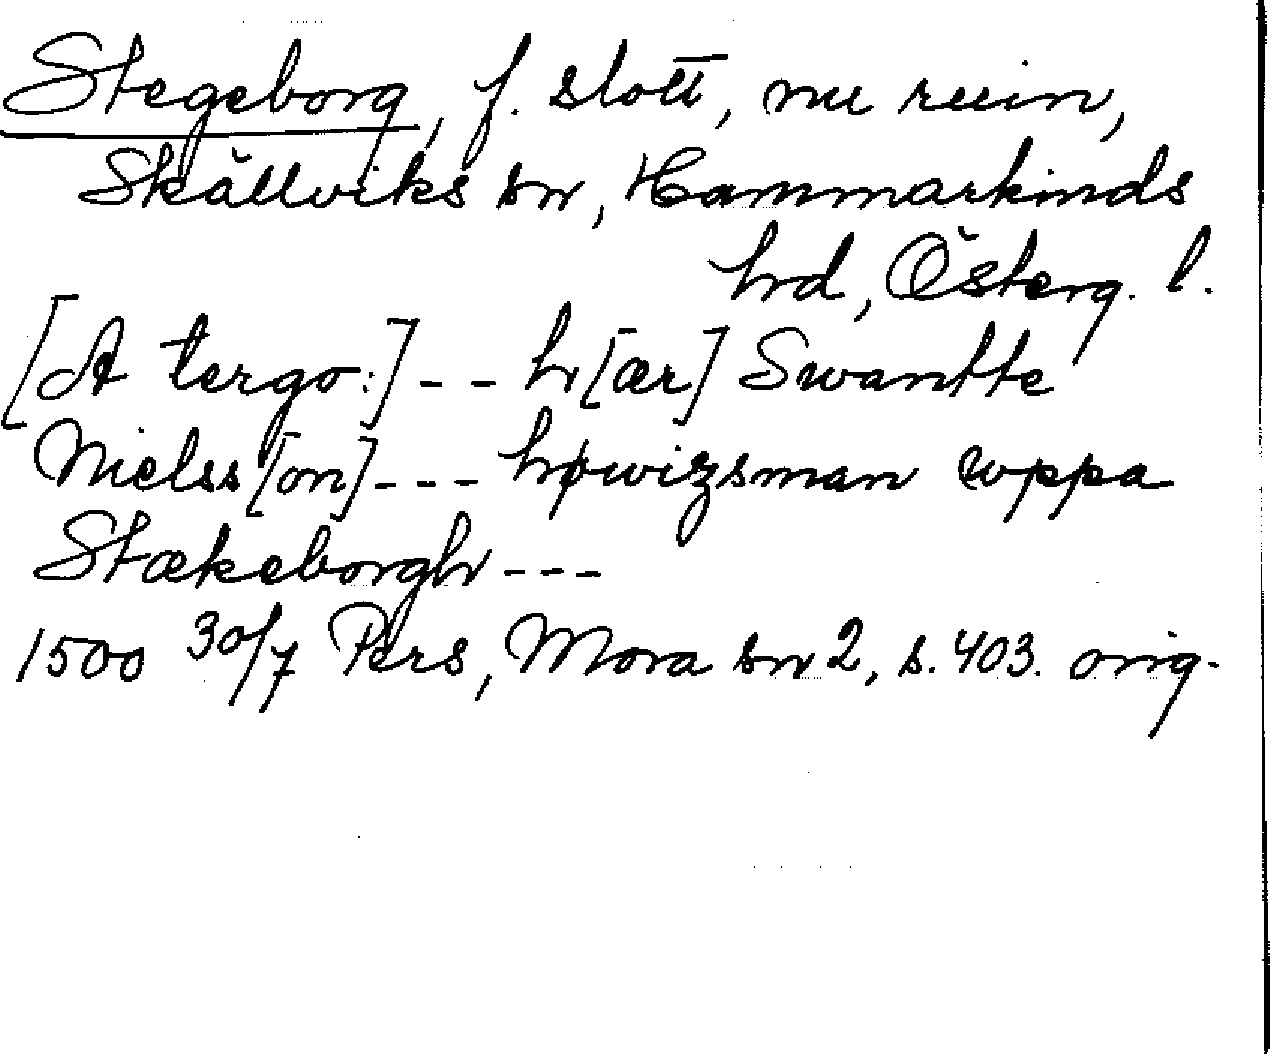 Stegeborg, f. slott, nu ruin,
Skällviks sn, Hammarkinds
hrd, Österg. l.
[A tergo:] - - h[ær] Swantte
Nielss[on] - - - høwizsman wppa
Stækeborgh - - -
1500 30/7 Pers, Mora sn 2, s. 403. orig.